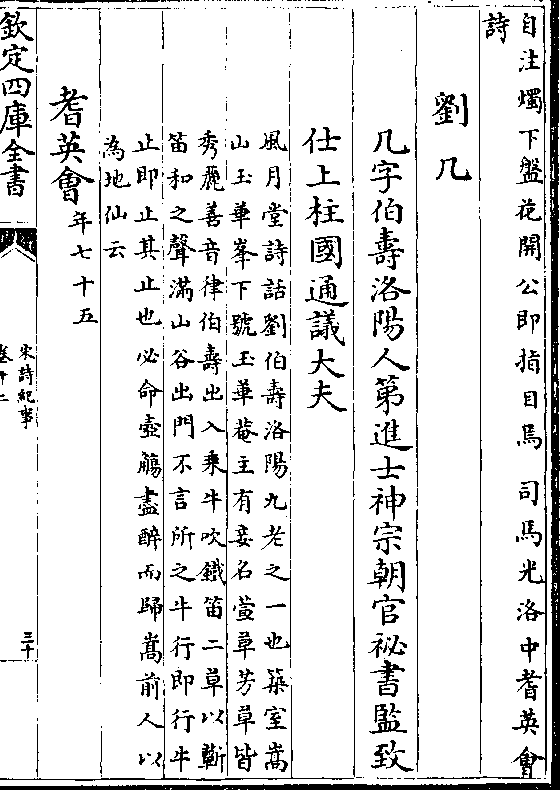 自注燭下盤花開公即指目焉　司馬光洛中耆英會
詩
劉几
几字伯壽洛陽人第進士神宗朝官祕書監致
仕上柱國通議大夫
風月堂詩話劉伯壽洛陽九老之一也築室嵩
山玉華峯下號玉華菴主有妾名萱草芳草皆
秀麗善音律伯壽出入乘牛吹鐵笛二草以蘄
笛和之聲滿山谷出門不言所之牛行即行牛
止即止其止也必命壺觴盡醉而歸嵩前人以
為地仙云
耆英會年七十五
欽定四庫全書
宋詩紀事
卷十二
三十